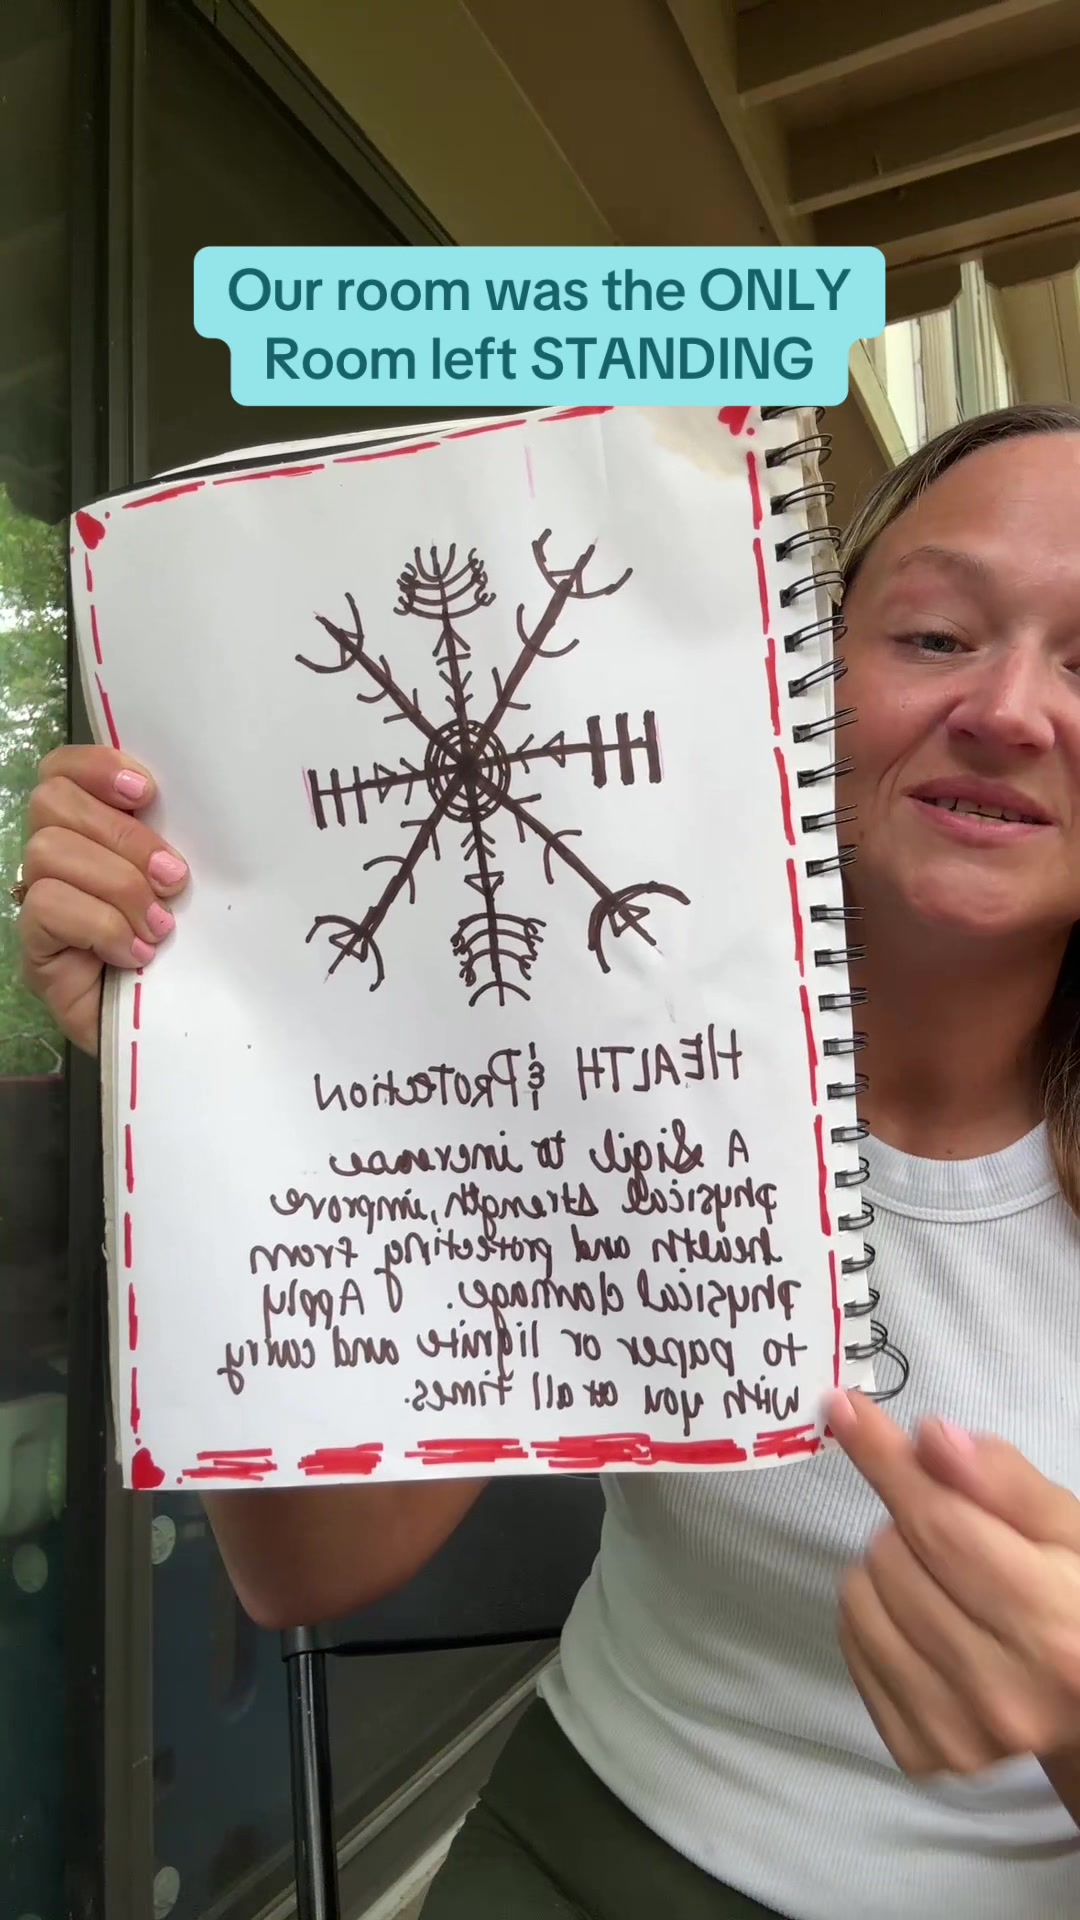 Our room was the ONLY
Room left STANDING
HEALTH & PROTECTION
A Sigil to increase
physical strength, improve
health and protecting from
physical damage. Apply
to paper or lignite and carry
with you at all times.